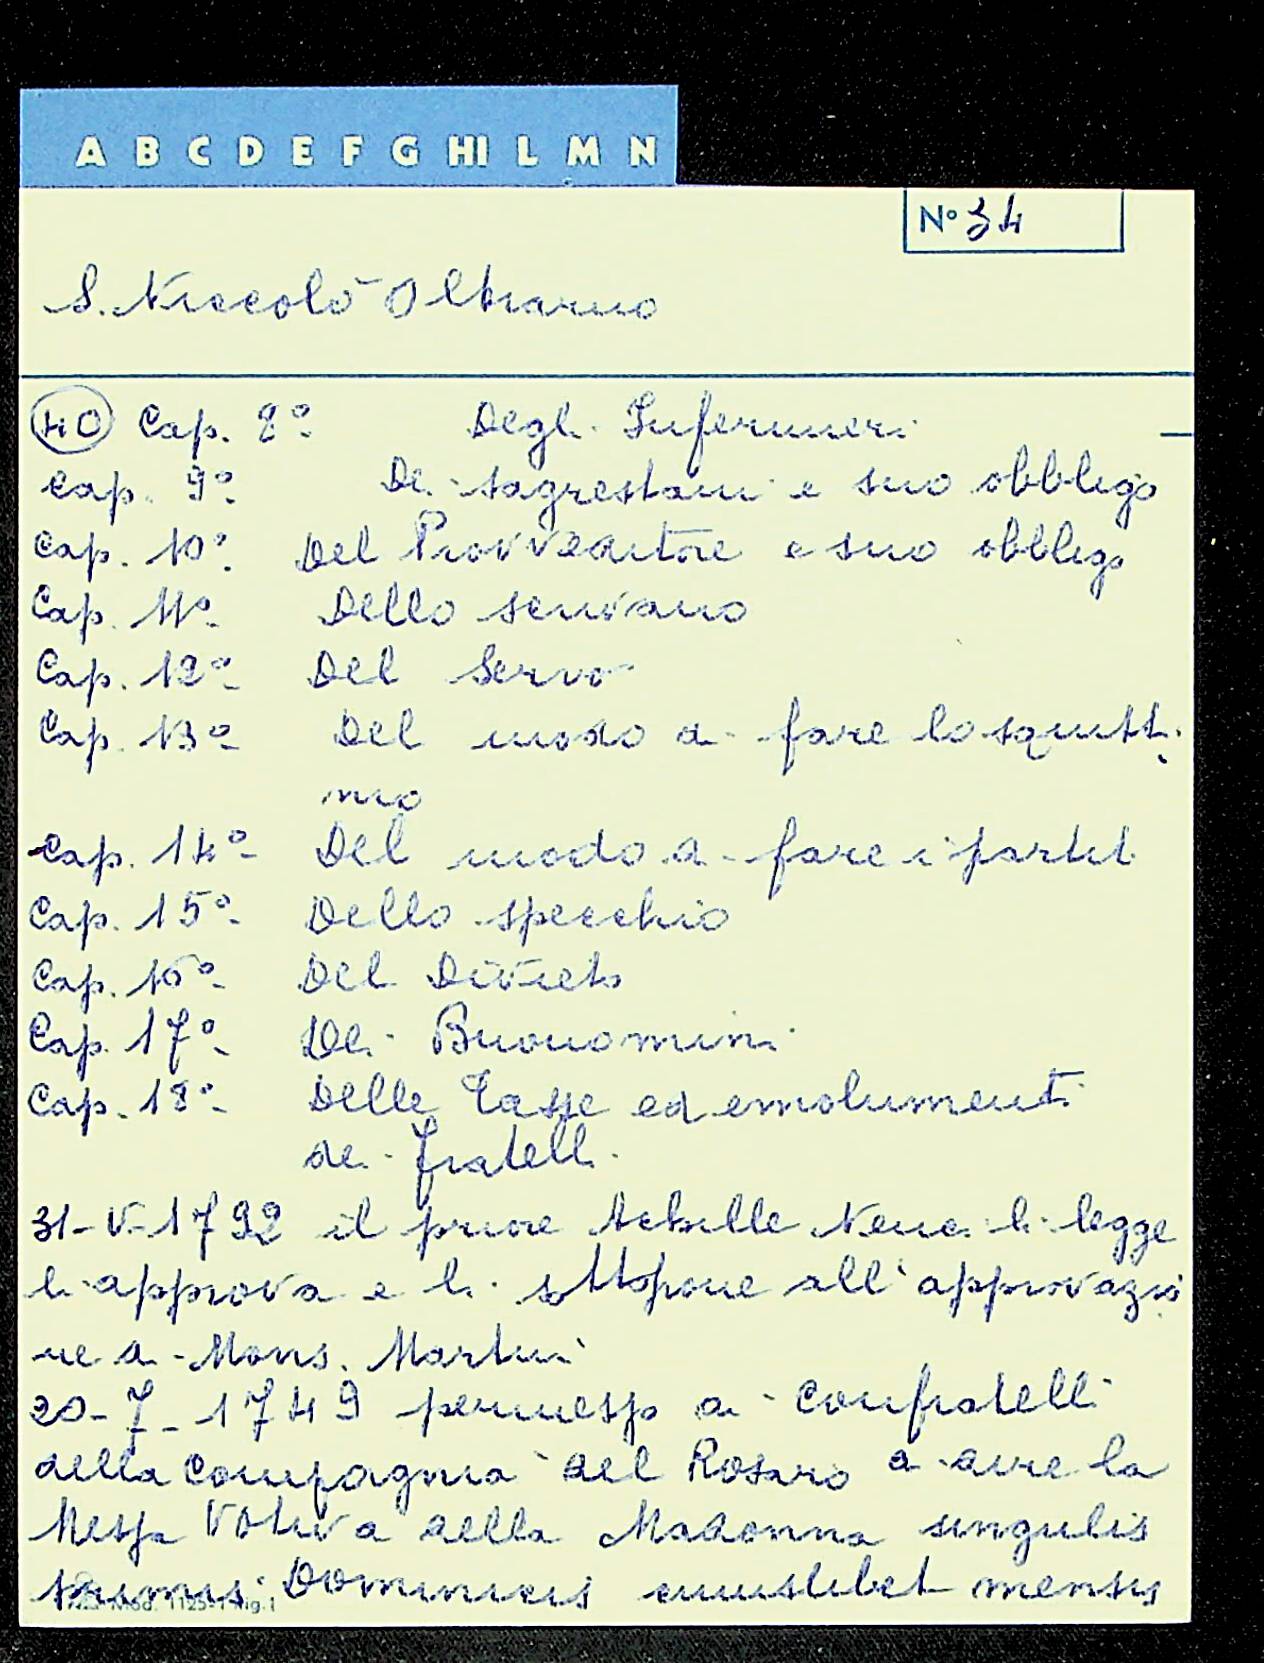 A B C D E F G HI L M N
N° 34
S. Niccolò Oltrarno
40 Cap. 8° Degli Infermieri
Cap. 9° Dei sagrestani e suo obbligo
Cap. 10° Del Provveditore e suo obbligo
Cap. 11° Dello scrivano
Cap. 12° Del Servo
Cap. 13° Del modo di fare lo squitti
nio
Cap. 14° Del modo di fare i partiti
Cap. 15° Dello specchio
Cap. 16° Del Divieto
Cap. 17° Dei Buonomini
Cap. 18° Delle Tasse ed emolumenti
dei fratelli
31-V-1792 il priore Achille Nenci li legge
li approva e li sottopone all'approvazio
ne di Mons. Martini
20-7-1749 permesso ai Confratelli
della Compagnia del Rosario di dire la
Messa Votiva della Madonna singulis
primis Dominicis cuiuslibet mensis